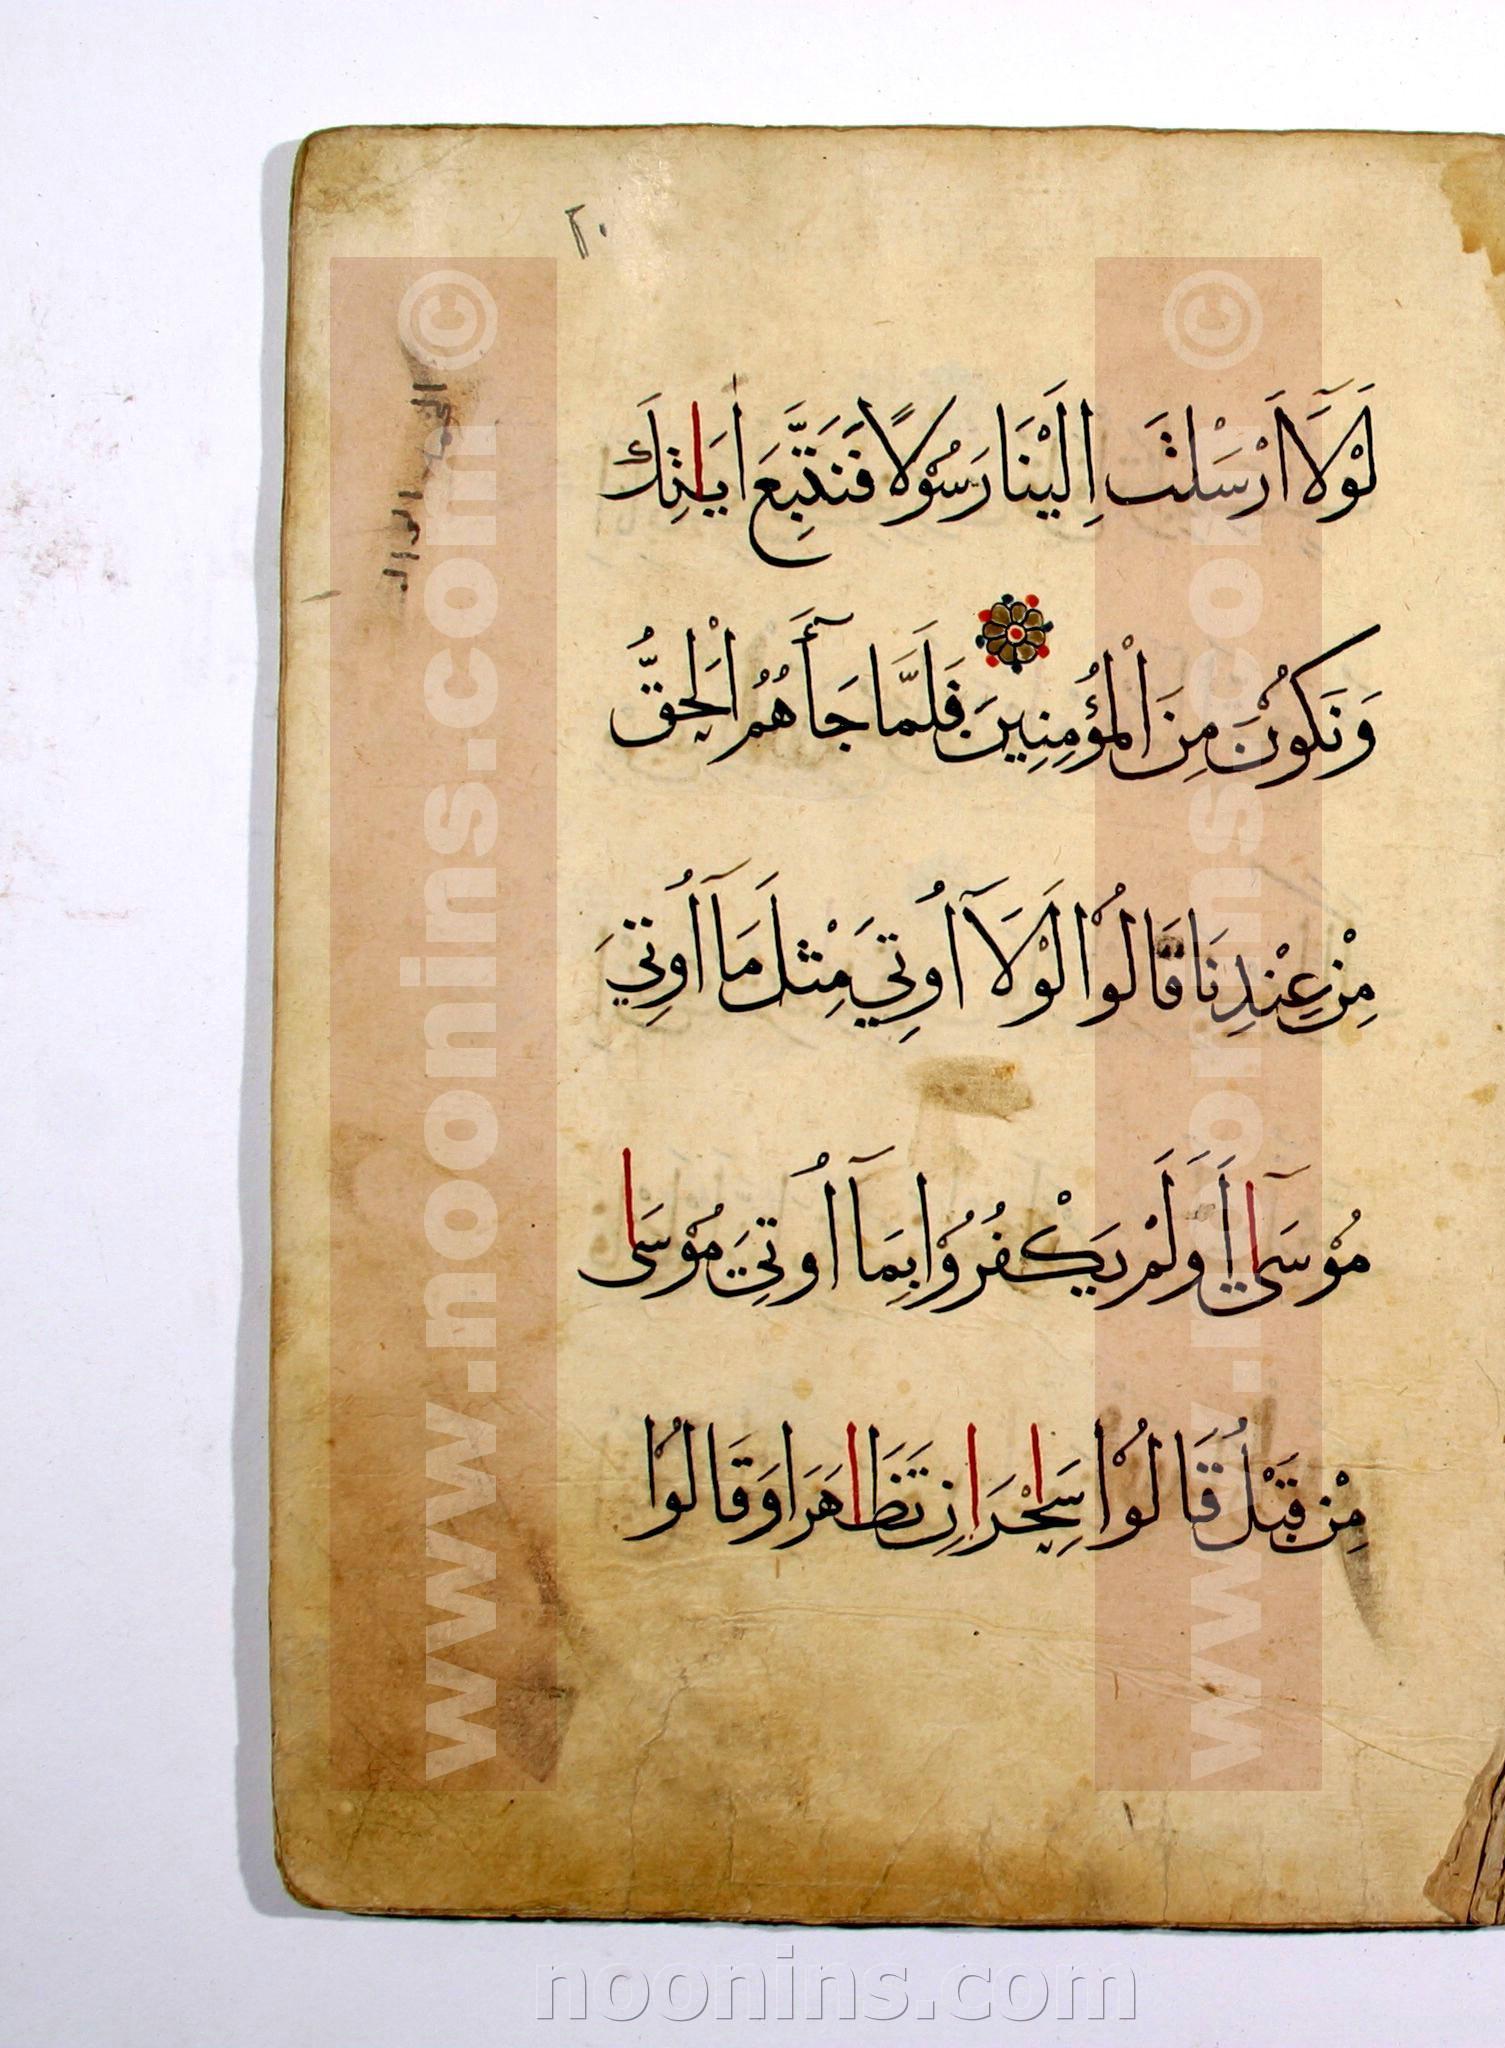 ٢٠
لَوْلَآ اَرْسَلْتَ اِلَيْنَا رَسُوْلًا فَنَتَّبِعَ اٰيَاتِكَ
وَنَكُوْنَ مِنَ الْمُؤْمِنِيْنَ فَلَمَّا جَآءَهُمُ الْحَقُّ
مِنْ عِنْدِنَا قَالُوْا لَوْلَآ اُوتِيَ مِثْلَ مَآ اُوتِيَ
مُوْسَىٰٓ اَوَلَمْ يَكْفُرُوْا بِمَآ اُوتِيَ مُوْسَىٰ
مِنْ قَبْلُ قَالُوْا سَاحِرَانِ تَظَاهَرَا وَقَالُوْا
www.noonins.com ©
www.noonins.com ©
noonins.com